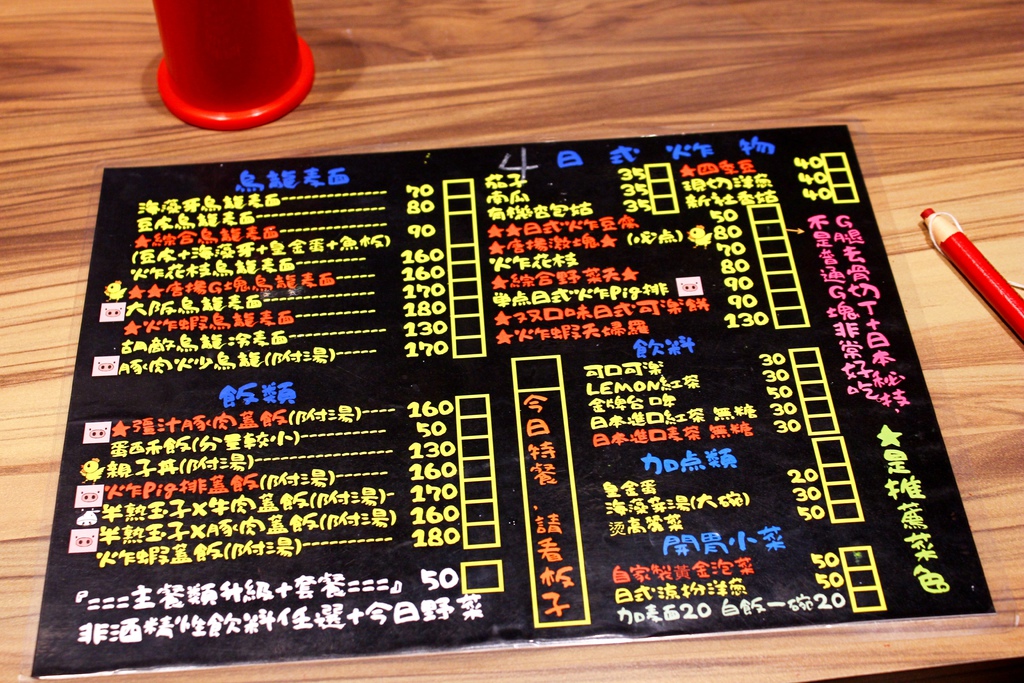 4
烏龍麦面
海藻芽烏龍麦面 70
豆皮烏龍麦面 80
★綜合烏龍麦面 90
(豆皮+海藻芽+黃金蛋+魚板)
火乍花枝烏龍麦面 160
★★唐揚G塊烏龍麦面 160
大阪烏龍麦面 170
★火乍蝦烏龍麦面 180
胡麻烏龍冷麦面 130
豚肉火少烏龍(附付湯) 170
飯類
★薑汁豚肉蓋飯(附付湯) 160
蛋西禾飯(分量較小) 50
親子丼(附付湯) 130
火乍Pig排蓋飯(附付湯) 160
半熟玉子X牛肉蓋飯(附付湯) 170
半熟玉子X豚肉蓋飯(附付湯) 160
火乍蝦蓋飯(附付湯) 180
『===主餐類升級+套餐===』 50
非酒精性飲料任選+今日野菜
日式火乍物
茄子 35
南瓜 35
有機杏包菇 35
★四季豆 40
現切洋蔥 40
新社香菇 40
★★日式火乍豆腐 50
★唐揚激塊★(必点) 80
火乍花枝 70
★綜合野菜天★ 80
單点日式火乍Pig排 90
★双口味日式可樂餅 90
★火乍蝦天婦羅 130
飲料
可口可樂 30
LEMON紅茶 30
金牌台啤 50
日本進口紅茶 無糖 30
日本進口麦茶 無糖 30
加点類
黃金蛋 20
海藻芽湯(大碗) 30
燙高麗菜 50
開胃小菜
自家製黃金泡菜 50
日式涼拌洋蔥 50
加麦面20 白飯一碗20
今日特餐,請看板子
G腿去骨切丁+日本秘技,
不是普通G塊非常好吃
★是推薦菜色